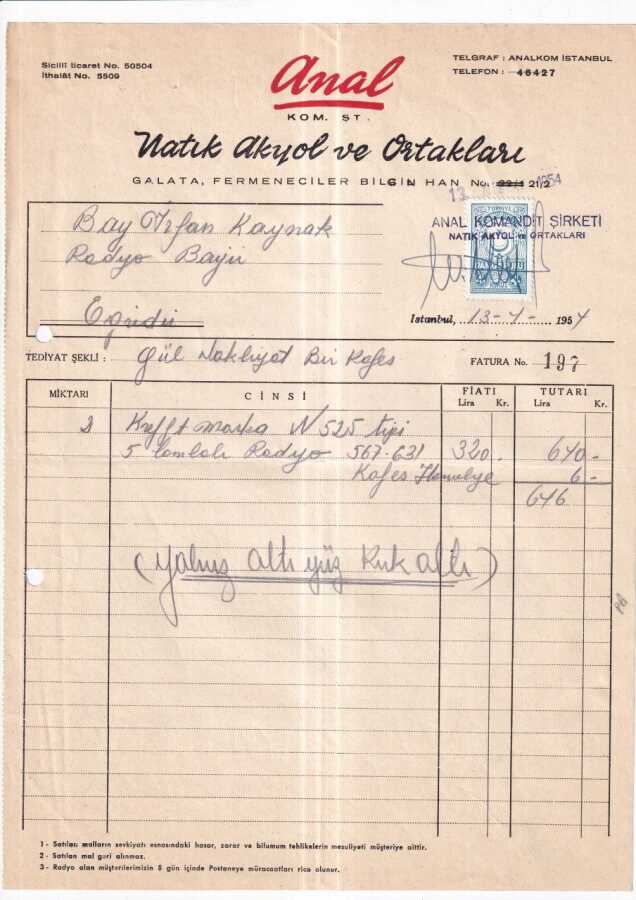 Sicilli ticaret No. 50504
İthalât No. 5509
Anal
KOM. ŞT.
TELGRAF : ANALKOM İSTANBUL
TELEFON : 46427
Natık Akyol ve Ortakları
GALATA, FERMENECİLER BİLGİN HAN No. 22/1 21/2
13 1954
TÜRKİYE
ANAL KOMANDİT ŞİRKETİ
NATIK AKYOL ve ORTAKLARI
Bay İrfan Kaynak
Radyo Bayii
Eğridir
Istanbul, 13-4- 1954
TEDİYAT ŞEKLİ : Gül Nakliyat Bir Kafes
FATURA No. 197
MİKTARI CİNSİ FİATI TUTARI
Lira Kr. Lira Kr.
2 Krefft marka N 525 tipi
5 lambalı Radyo 567-631 320.- 640-
Kafes Hamaliye 6-
646
(Yalnız altı yüz kırk altı)
1 - Satılan malların sevkiyatı esnasındaki hasar, zarar ve bilumum tehlikelerin mesuliyeti müşteriye aittir.
2 - Satılan mal geri alınmaz.
3 - Radyo alan müşterilerimizin 8 gün içinde Postaneye müracaatları rica olunur.